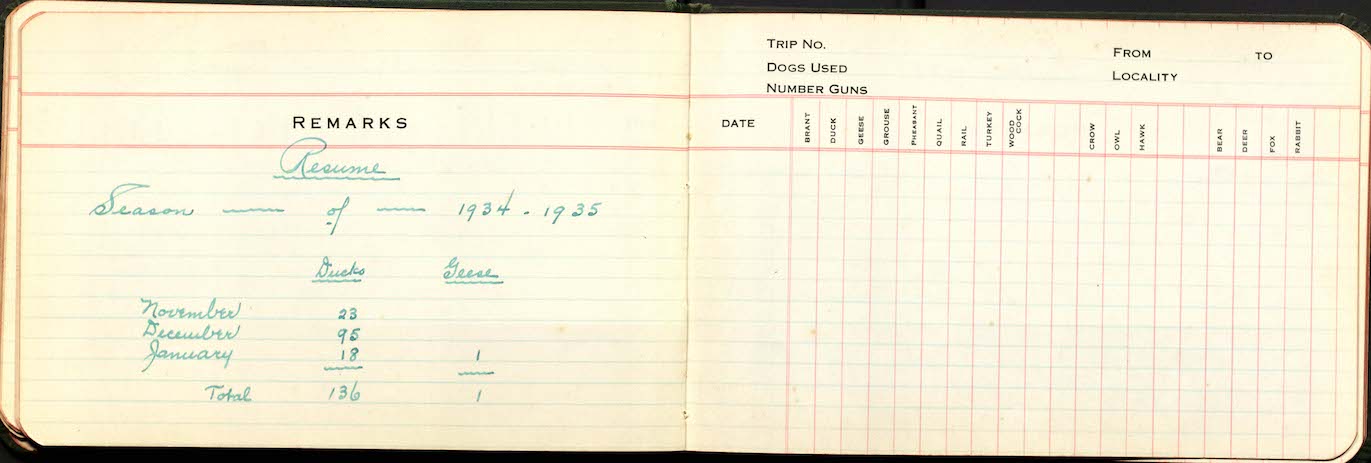 REMARKS
Resume
Season — of — 1934 - 1935
Ducks Geese
November 23
December 95
January 18 1
Total 136 1
TRIP NO. FROM TO
DOGS USED LOCALITY
NUMBER GUNS
DATE BRANT DUCK GEESE GROUSE PHEASANT QUAIL RAIL TURKEY WOOD COCK CROW OWL HAWK BEAR DEER FOX RABBIT